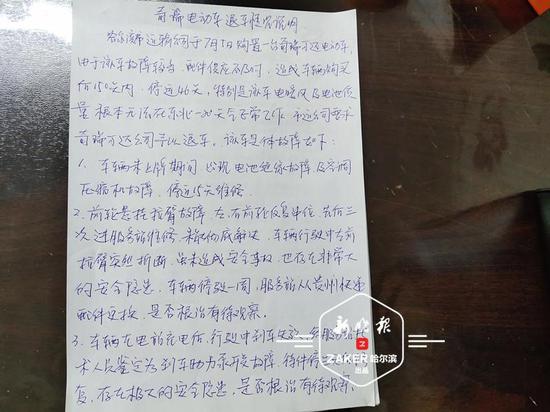 奇瑞电动车退车情况说明
哈尔滨市运输公司于7月1日购置一台奇瑞万达电动车,
由于该车故障较多,配件供应不及时,造成车辆购买
后150天内,停运46天,特别是该车电暖风及电池质
量根本无法在东北-30℃天气正常工作。我运输公司要求
奇瑞万达公司予以退车,该车具体故障如下:
1、车辆未上牌期间,出现电池绝缘故障及空调
压缩机故障,停运15天维修。
2、前轮悬挂拉臂故障,左、右前轮反复串位,先后三
次进服务站维修,未彻底解决,车辆行驶中右前
拉臂突然折断,虽未造成安全事故,也存在非常大
的安全隐患,车辆停驶一周,服务站从贵州极速
配件更换,是否根治有待观察。
3、车辆充电站充电后,行驶中刹车失灵,经服务站技
术人员鉴定为刹车助力泵开发故障,待件停
复,存在极大的安全隐患,是否根治有待观察。
新晚报
ZAKER哈尔滨
出品